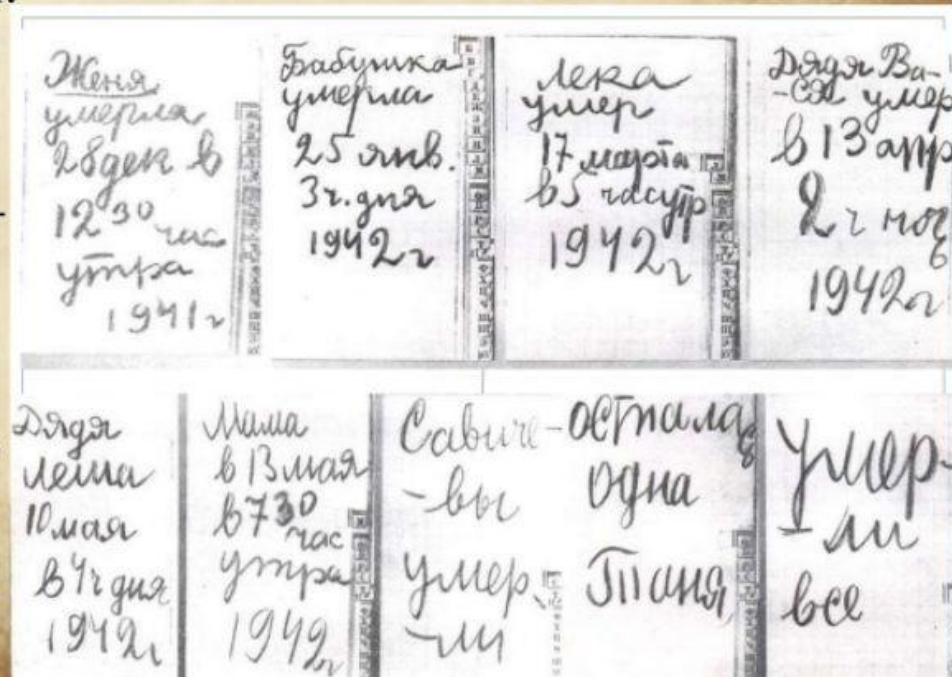 Женя
умерла
28 дек в
12 30 час
утра
1941 г
Бабушка
умерла
25 янв.
3 ч. дня
1942 г
Лека
умер
17 марта
в 5 час утр
1942 г
Дядя Ва-
-ся умер
в 13 апр
2 ч ноч
1942 г
Дядя
Леша
10 мая
в 4 ч дня
1942 г
Мама
в 13 мая
в 7 30 час
утра
1942 г
Савиче-
-вы
умер
-ли
Умер-
-ли
все
осталась
одна
Таня